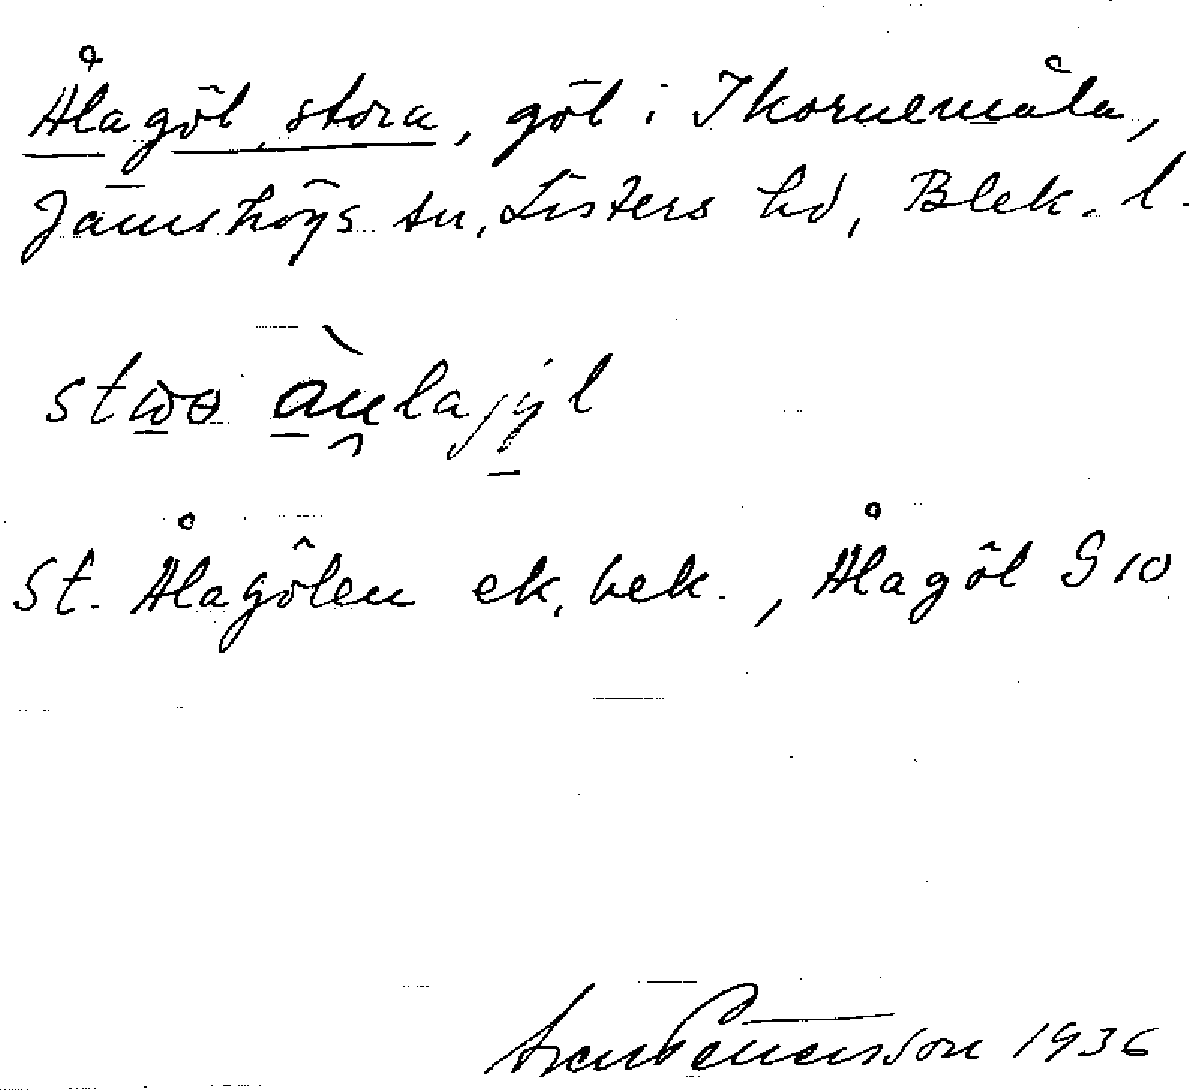 Ålagöl, stora, göl i Ikornemåla,
Jämshögs sn, Listers hd, Blek. l.
St. Ålagölen ek. bek., Ålagöl G 10
Pettersson 1936